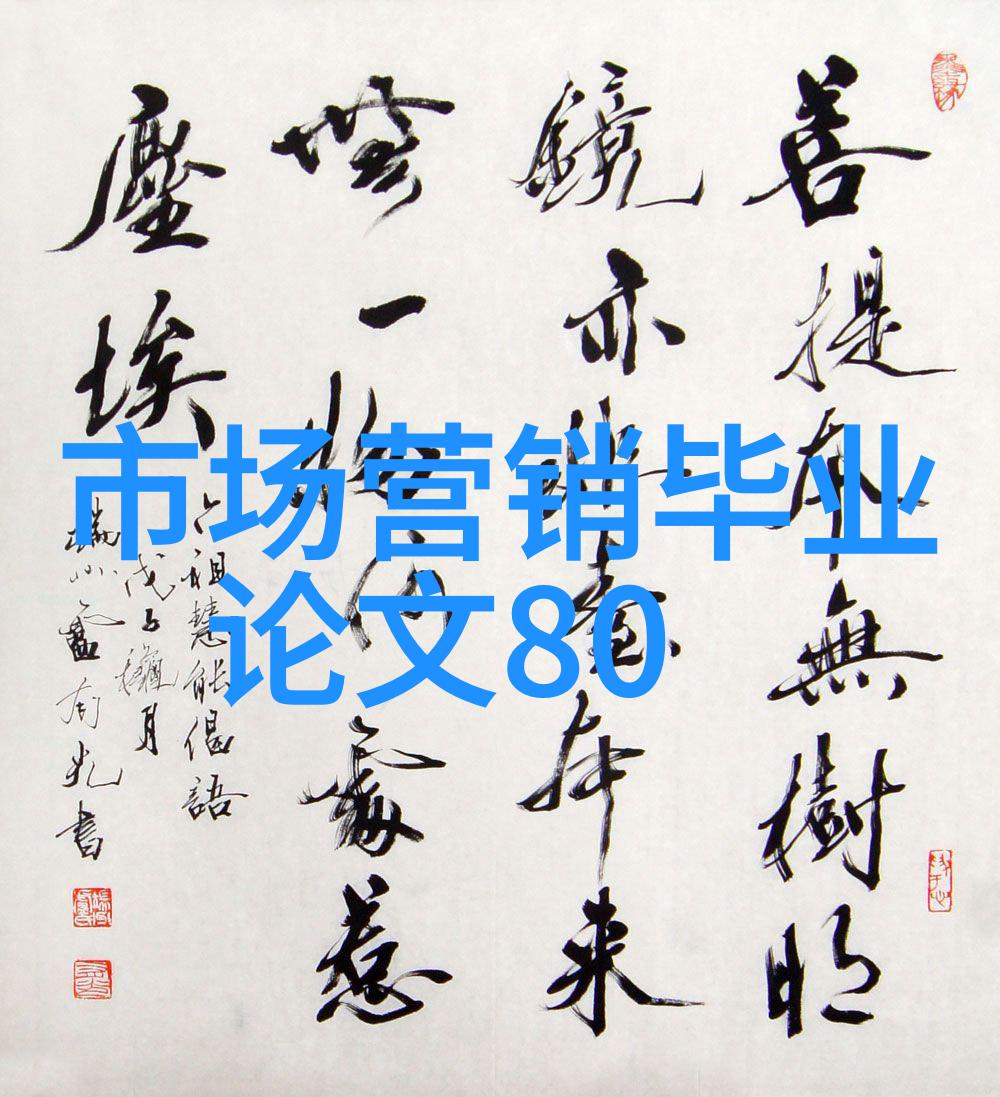 市场营销毕业
论文80
菩提本無樹明
鏡亦非臺本来
無一物何處惹
塵埃
六祖慧能偈語
戊子龝月
端州盧有光書